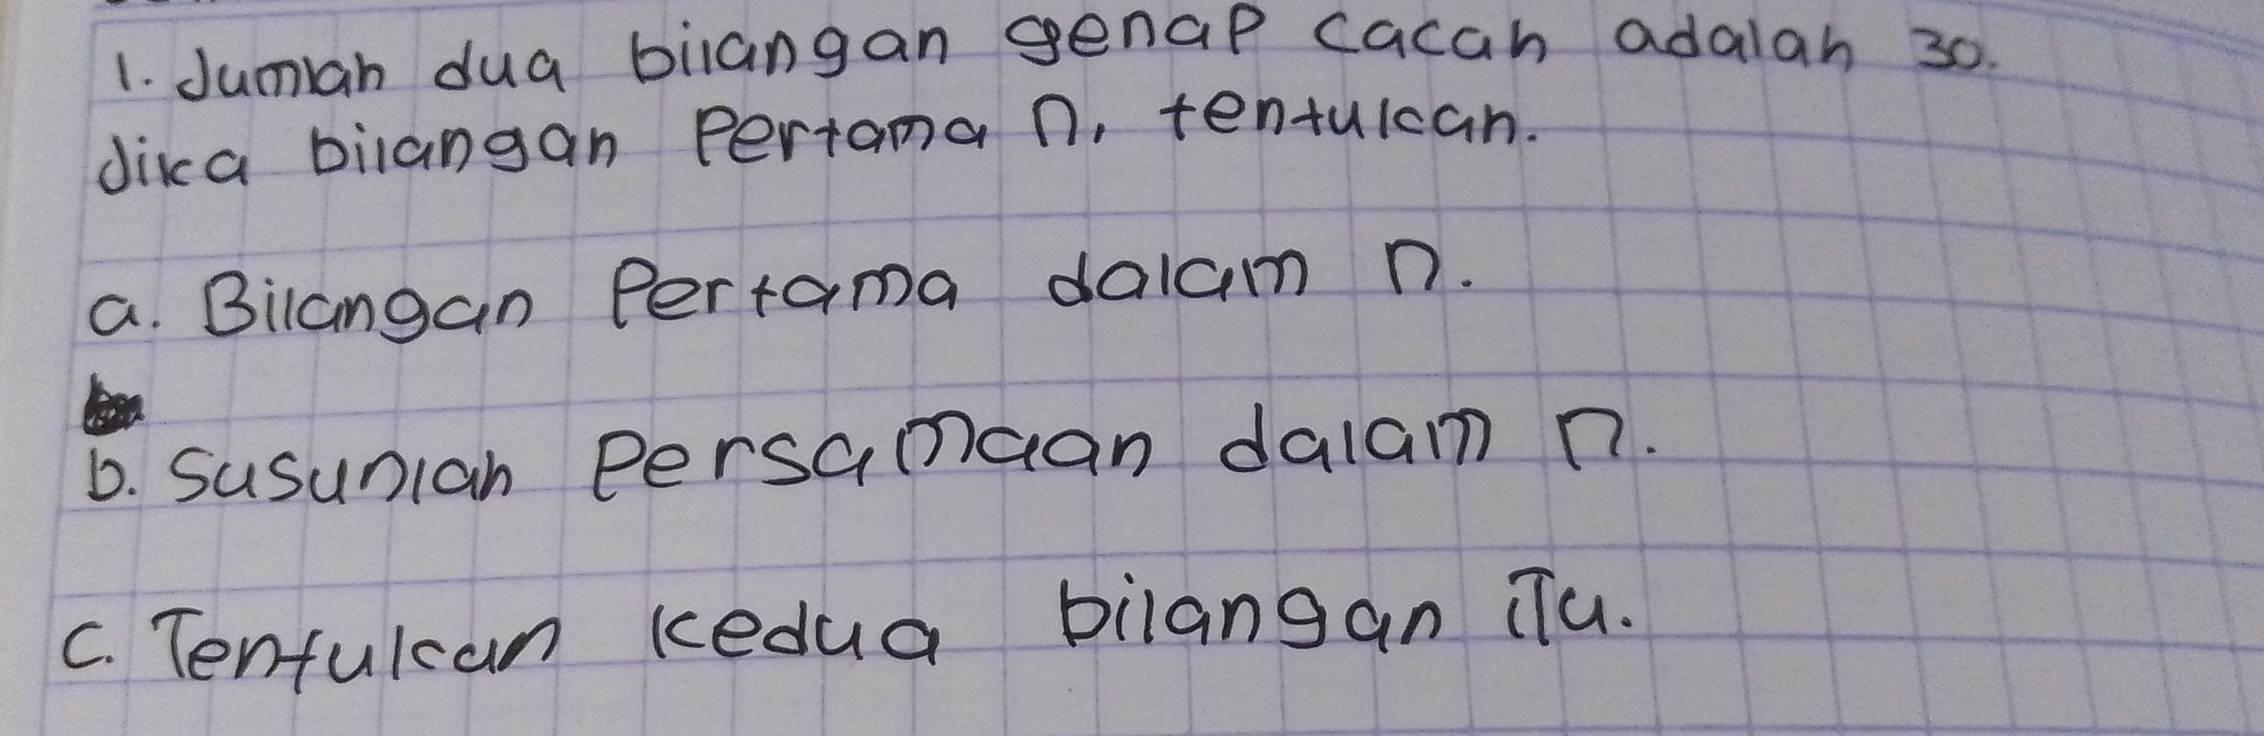 1. Jumlah dua bilangan genap cacah adalah 30.
Jika bilangan Pertama n, tentukan.
a. Bilangan Pertama dalam n.
b. Susunlah Persamaan dalam n.
c. Tentukan kedua bilangan iTu.